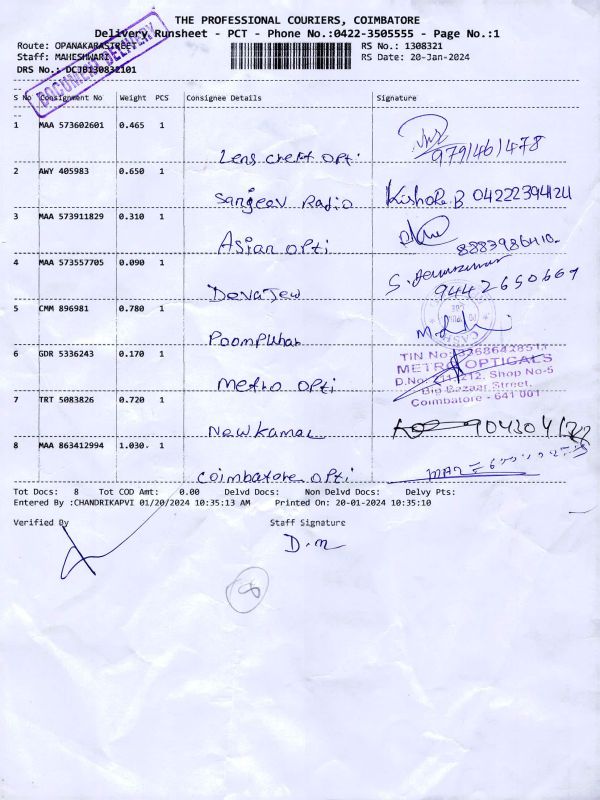 THE PROFESSIONAL COURIERS, COIMBATORE
Delivery Runsheet - PCT - Phone No.:0422-3505555 - Page No.:1
Route: OPANAKARASTREET RS No.: 1308321
Staff: MAHESHWARI RS Date: 20-Jan-2024
DRS No.: DCJB130832101
DOCUMENT DELIVERY
S No Consignment No Weight PCS Consignee Details Signature
1 MAA 573602601 0.465 1
Lens creft opti. 9791461478
2 AWY 405983 0.650 1
Sangeev Radio Kishore.B 04222394124
3 MAA 573911829 0.310 1
Asian opti
4 MAA 573557705 0.090 1
Devajew 9442650667
5 CMM 896981 0.780 1
Poompuhar
6 GDR 5336243 0.170 1
TIN No:
METRO OPTICALS
Metro opti Shop No-5
Big Bazaar Street,
Coimbatore - 641 001
7 TRT 5083826 0.720 1
New Kamal
8 MAA 863412994 1.030 1
Coimbatore opti
Tot Docs: 8 Tot COD Amt: 0.00 Delvd Docs: Non Delvd Docs: Delvy Pts:
Entered By :CHANDRIKAPVI 01/20/2024 10:35:13 AM Printed On: 20-01-2024 10:35:10
Verified By Staff Signature
D.M
8